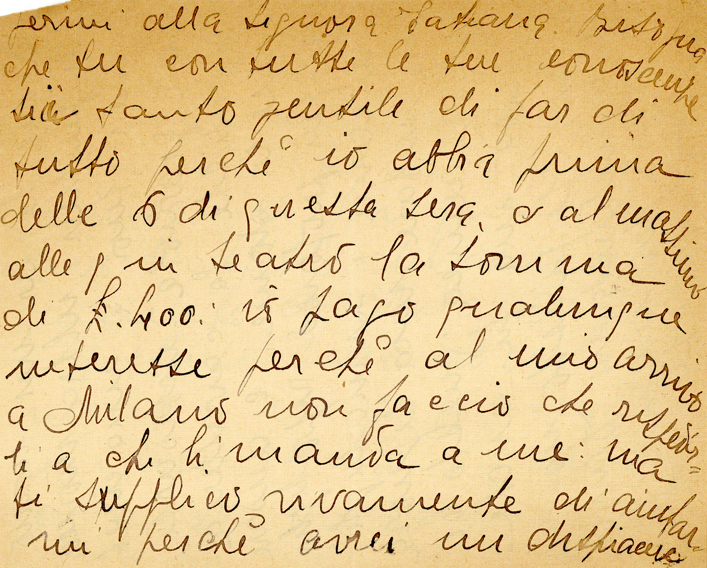 alla Signora Tatiana. Bisogna
che tu con tutte le tue conoscenze
sii tanto gentile di far di
tutto perchè io abbia prima
delle 6 di questa sera, o al massimo
alle 9 in teatro la somma
di L. 400: io pago qualunque
interesse perchè al mio arrivo
a Milano non faccio che rispedir=
li a chi li manda a me: ma
ti supplico vivamente di aiutar=
mi perchè avrei un dispiacere